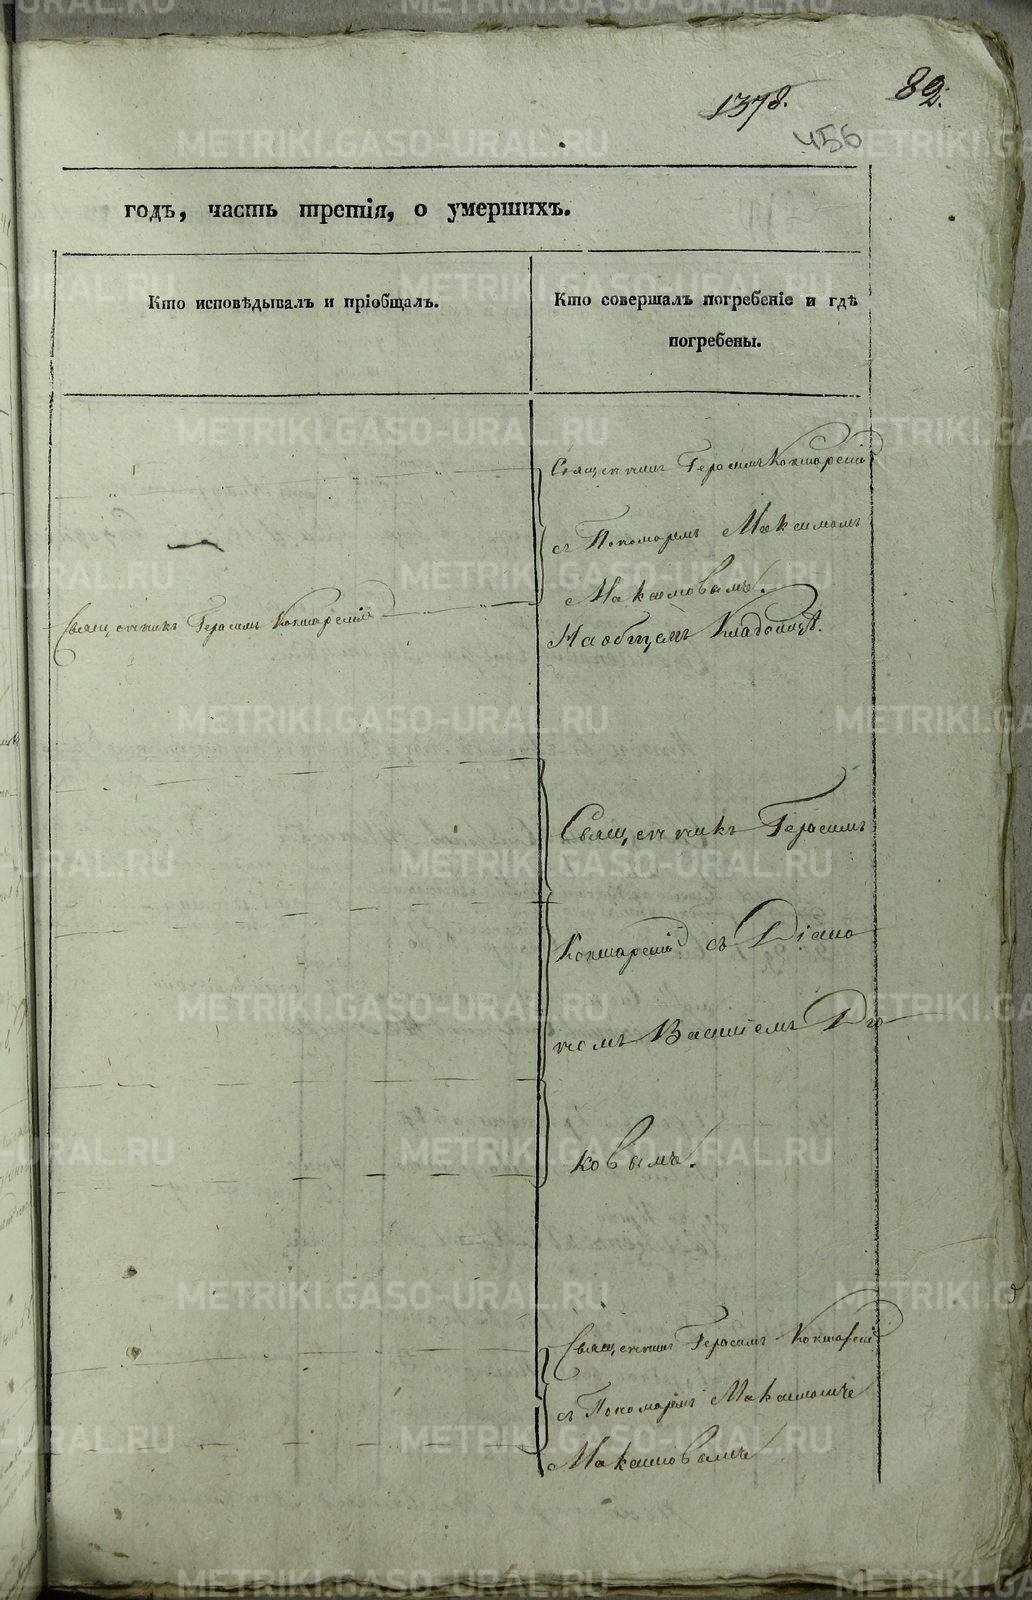 1378.
82.
456
годъ, часть третія, о умершихъ.
Кто исповѣдывалъ и пріобщалъ.
Кто совершалъ погребеніе и гдѣ
погребены.
Священникъ Герасимъ
съ Пономаремъ Максимомъ
Максимовымъ.
На общемъ Кладбищѣ.
Священникъ Герасимъ
Священникъ Герасимъ
съ Діако
номъ Василіемъ
ковымъ.
Священникъ Герасимъ
съ Пономаремъ
Максимовымъ
METRIKI.GASO-URAL.RU